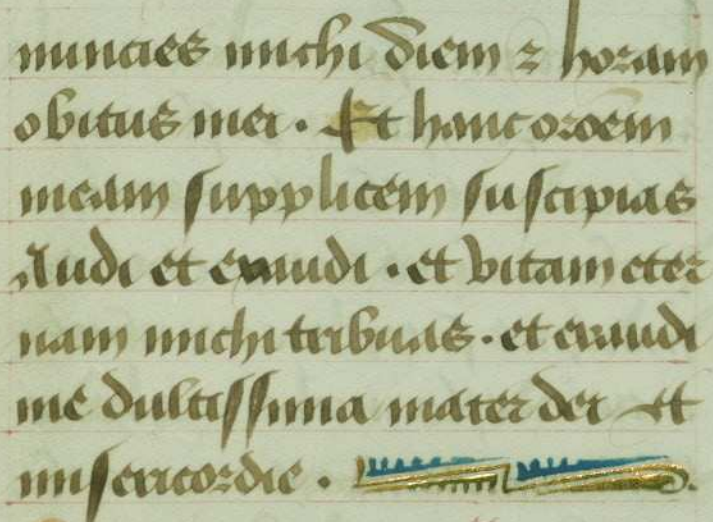 nuncies michi diem ⁊ horam
obitus mei . Et hanc oroem
meam supplicem suscipias
Audi et exaudi . et vitam eter
nam michi tribuas . et exaudi
me dulcissima mater dei et
misericordie .